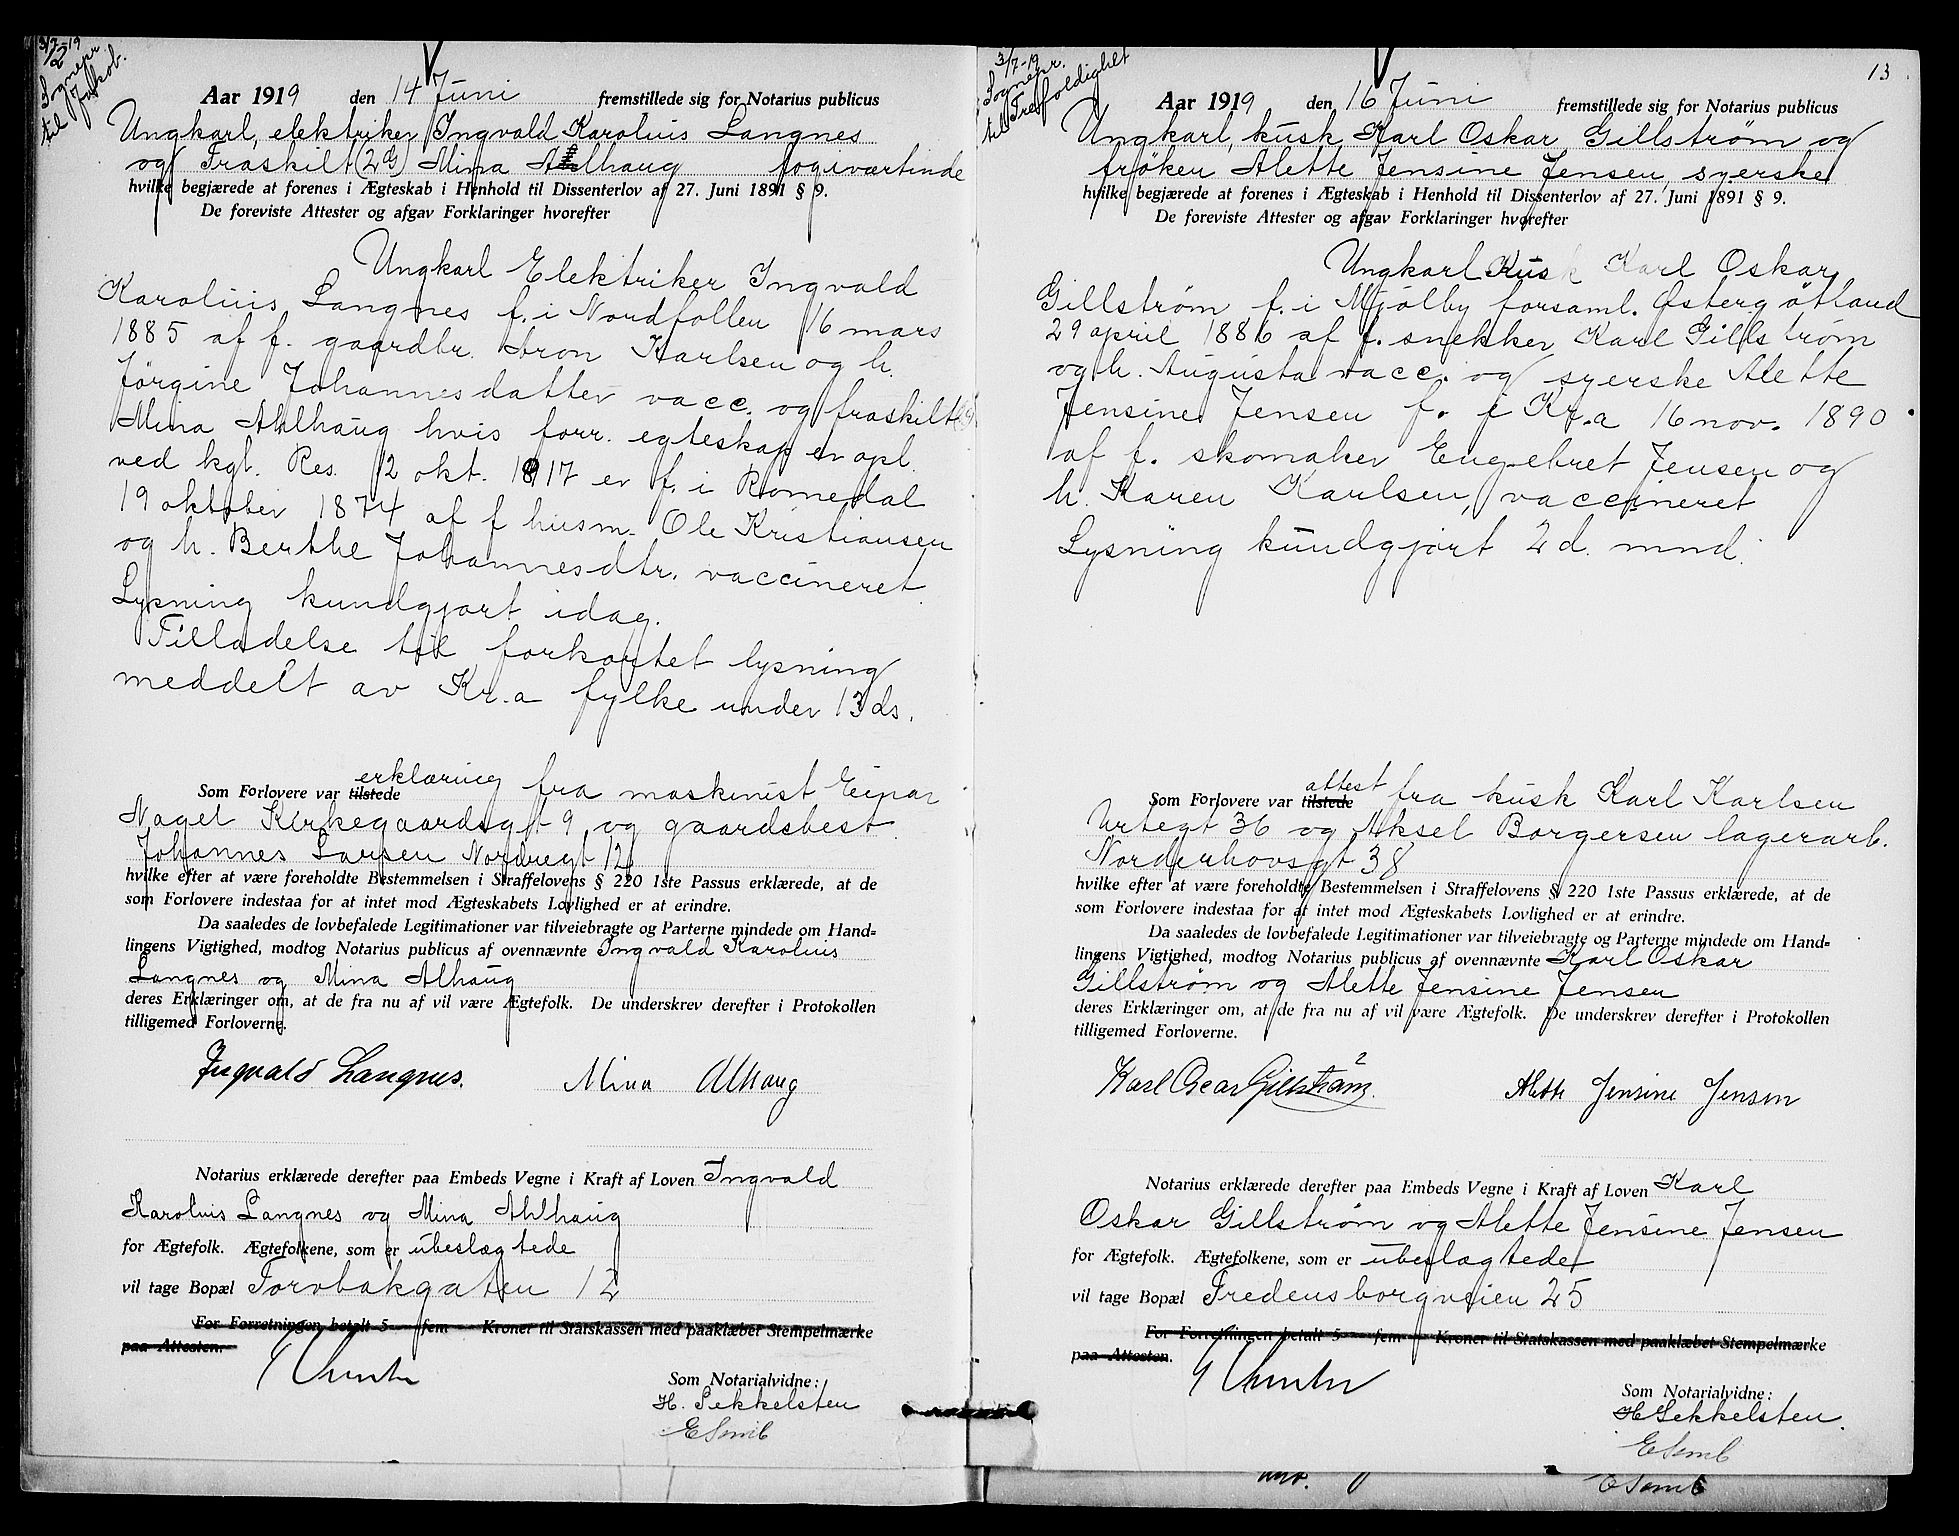 3/7-19
Sognepr.
til Jakob.
Aar 1919 den 14 Juni fremstillede sig for Notarius publicus
Ungkarl, elektriker Ingvald Karolius Langnes
og Fraskilt (2G) Mina Ahlhaug
hvilke begjærede at forenes i Ægteskab i Henhold til Dissenterlov af 27. Juni 1891 § 9.
De foreviste Attester og afgav Forklaringer hvorefter
Ungkarl Elektriker Ingvald
Karolius Langnes f. i Nordfollen 16 mars
1885 af f. gaardbr. Aron Karlsen og h.
Jørgine Johannesdatter vacc. og fraskilt
Mina Ahlhaug hvis forr. egteskap er opl.
ved kgl. Res. 12 okt. 1917 er f. i Romedal
19 oktober 1874 af f husm. Ole Kristiansen
og h. Berthe Johannesdtr. vaccineret
Lysning kundgjort idag.
Tilladelse til forkortet lysning
meddelt av Kr.a fylke under 13 ds.
Som Forlovere var tilstede erklæring fra maskinist Einar
Nagel Kirkegaardsgt 9 og gaardsbest.
Johannes Larsen Nordregt 12
hvilke efter at være foreholdte Bestemmelsen i Straffelovens § 220 1ste Passus erklærede, at de
som Forlovere indestaa for at intet mod Ægteskabets Lovlighed er at erindre.
Da saaledes de lovbefalede Legitimationer var tilveiebragte og Parterne mindede om Hand=
lingens Vigtighed, modtog Notarius publicus af ovennævnte Ingvald Karolius
Langnes og Mina Alhaug
deres Erklæringer om, at de fra nu af vil være Ægtefolk. De underskrev derefter i Protokollen
tilligemed Forloverne.
Ingvald Langnes. Mina Alhaug
Notarius erklærede derefter paa Embeds Vegne i Kraft af Loven Ingvald
Karolius Langnes og Mina Ahlhaug
for Ægtefolk. Ægtefolkene, som er ubeslægtede
vil tage Bopæl Torvbakgaten 12
For Forretningen betalt 5 — fem — Kroner til Statskassen med paaklæbet Stempelmærke
paa Attesten.
Som Notarialvidne:
H. Sekkelsten
E Semb
13
3/7-19
Sognepr.
til Trefoldighet
Aar 1919 den 16 Juni fremstillede sig for Notarius publicus
Ungkarl, kusk Karl Oskar Gillstrøm og
frøken Alette Jensine Jensen, syerske
hvilke begjærede at forenes i Ægteskab i Henhold til Dissenterlov af 27. Juni 1891 § 9.
De foreviste Attester og afgav Forklaringer hvorefter
Ungkarl Kusk Karl Oskar
Gillstrøm f. i Mjölby forsaml. Østergötland
29 april 1886 af f. snekker Karl Gillstrøm
og h. Augusta vacc. og syerske Alette
Jensine Jensen f. i Kr.a 16 nov. 1890
af f. skomaker Engebret Jensen og
h. Karen Karlsen, vaccineret
Lysning kundgjort 2 d. mnd.
Som Forlovere var tilstede attest fra kusk Karl Karlsen
Urtegt 36 og Aksel Borgersen lagerarb.
Norderhovsgt 38
hvilke efter at være foreholdte Bestemmelsen i Straffelovens § 220 1ste Passus erklærede, at de
som Forlovere indestaa for at intet mod Ægteskabets Lovlighed er at erindre.
Da saaledes de lovbefalede Legitimationer var tilveiebragte og Parterne mindede om Hand=
lingens Vigtighed, modtog Notarius publicus af ovennævnte Karl Oskar
Gillstrøm og Alette Jensine Jensen
deres Erklæringer om, at de fra nu af vil være Ægtefolk. De underskrev derefter i Protokollen
tilligemed Forloverne.
Karl Oscar Gillström. Alette Jensine Jensen
Notarius erklærede derefter paa Embeds Vegne i Kraft af Loven Karl
Oskar Gillstrøm og Alette Jensine Jensen
for Ægtefolk. Ægtefolkene, som er ubeslægtede
vil tage Bopæl Fredensborgveien 25
For Forretningen betalt 5 — fem — Kroner til Statskassen med paaklæbet Stempelmærke
paa Attesten.
Som Notarialvidne:
H Sekkelsten
E Semb
E Semb